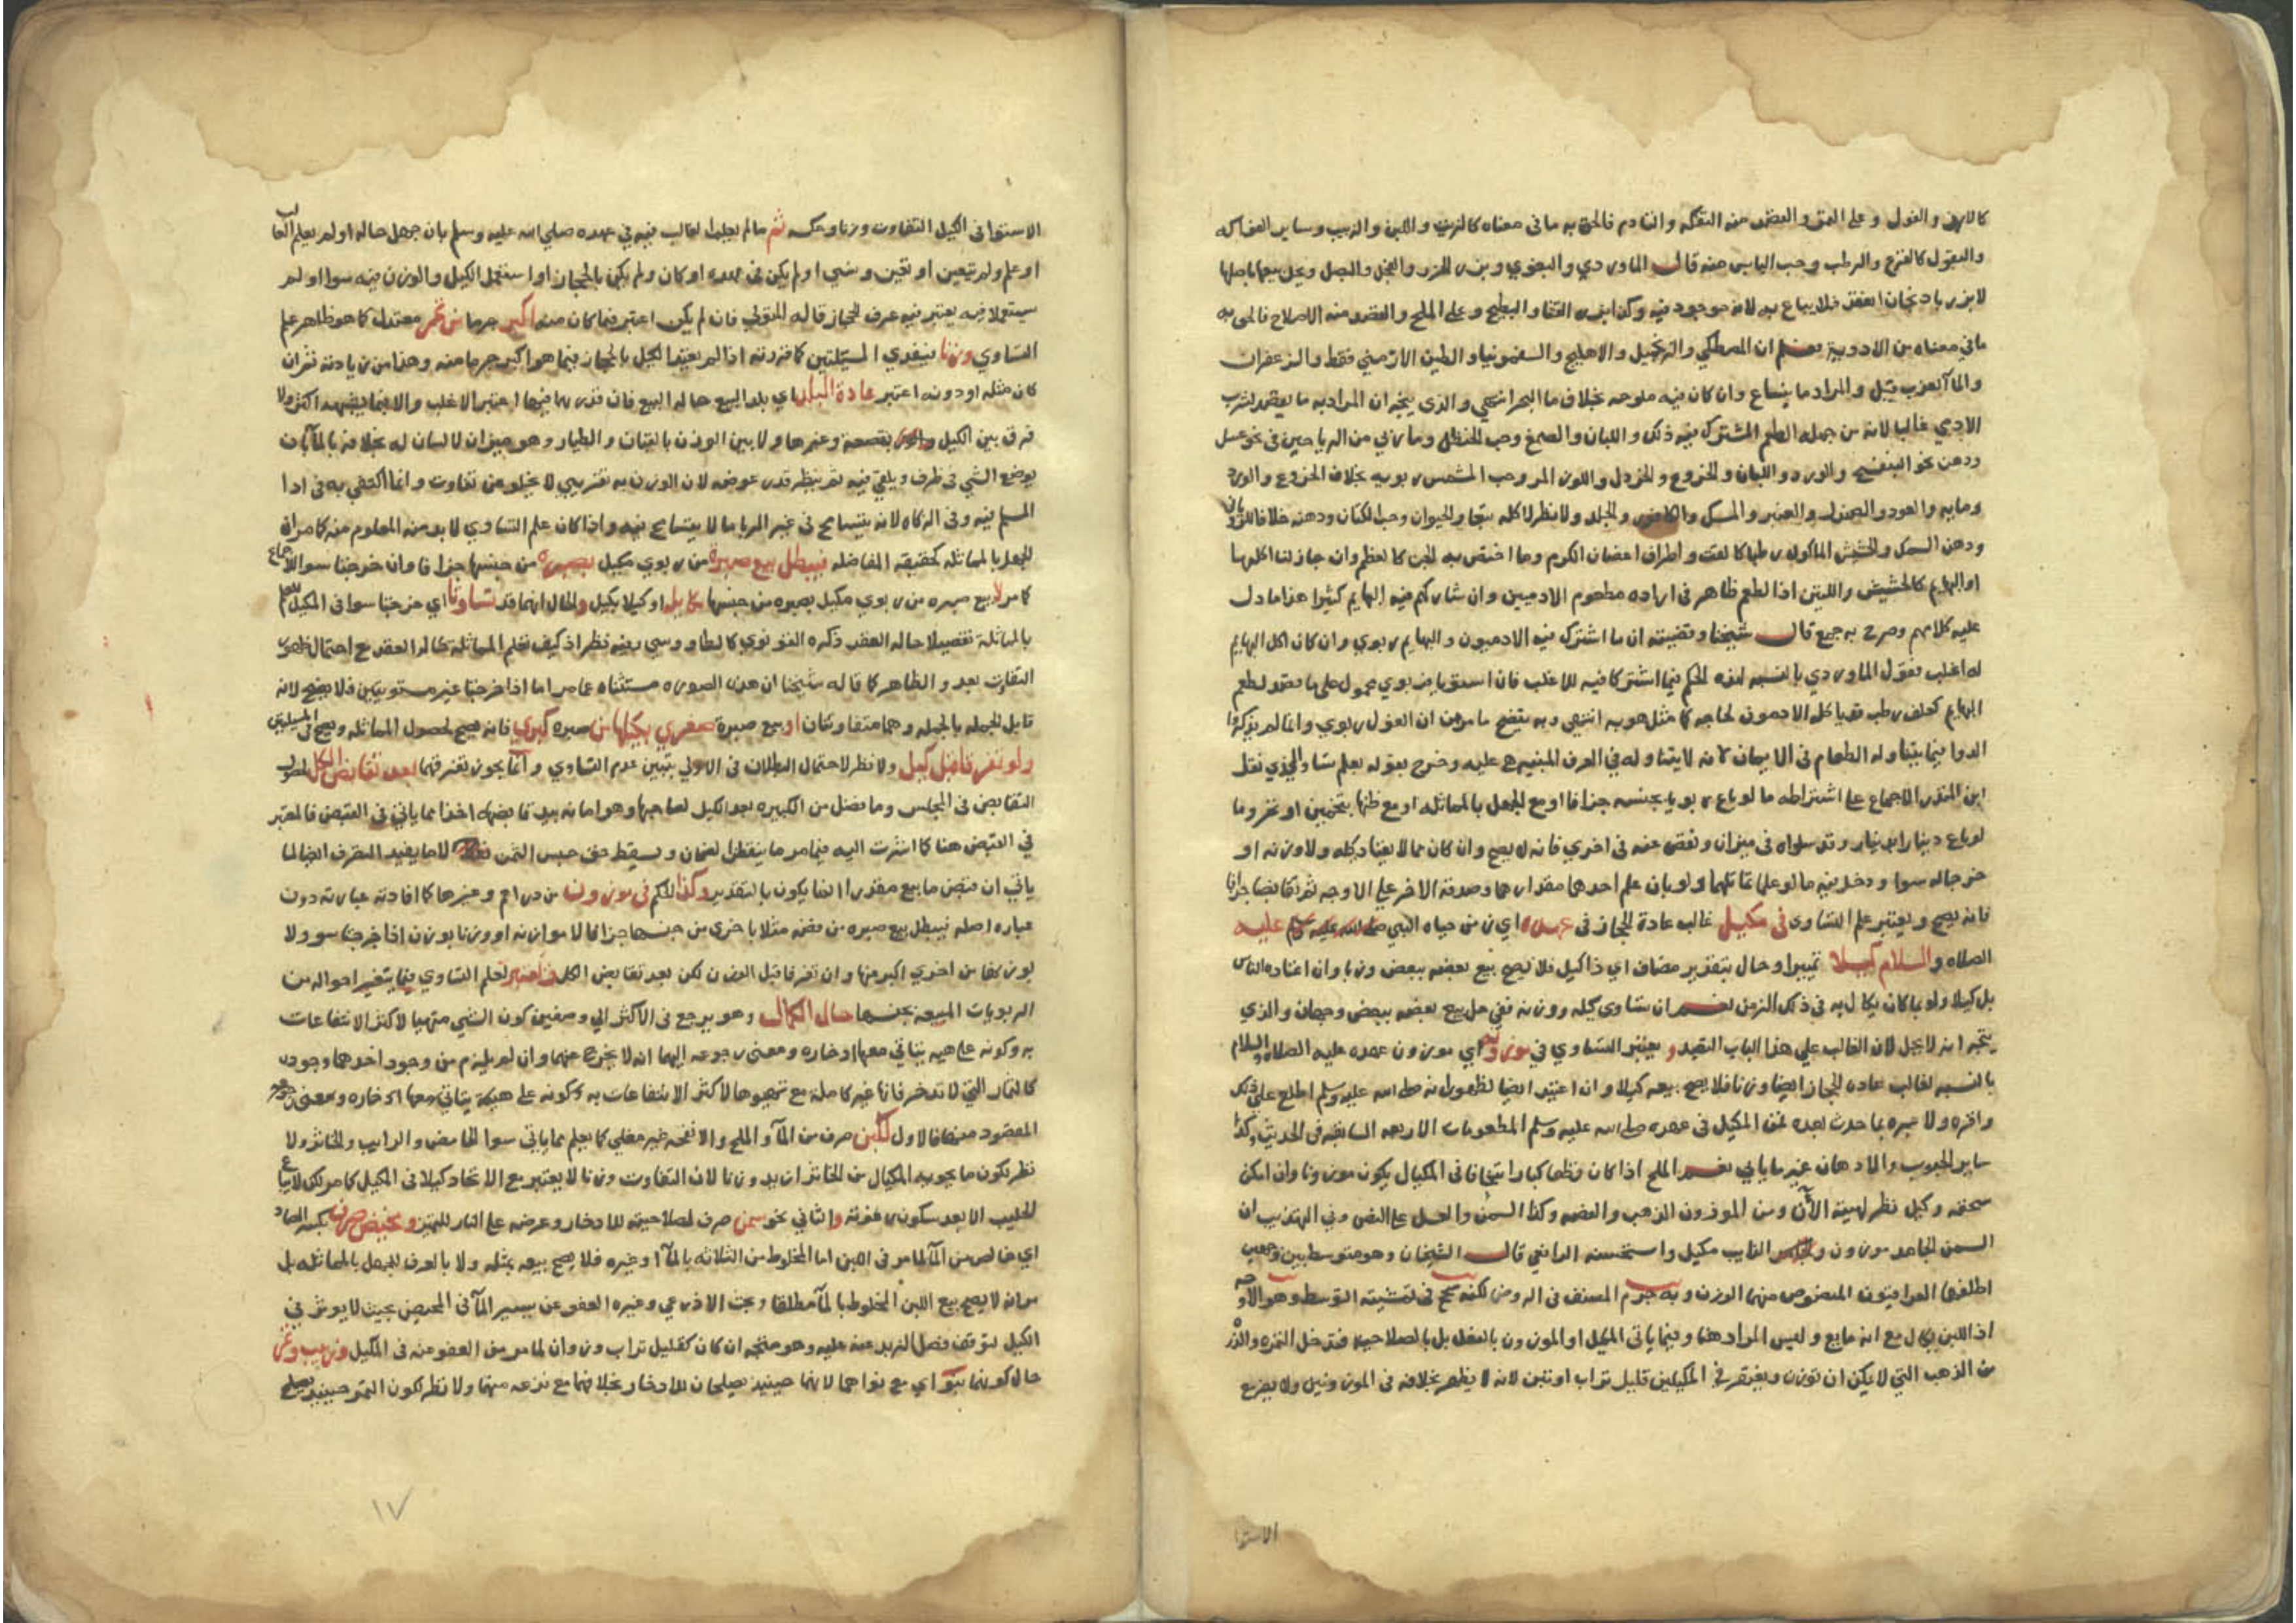 كالارز والفول وعلى التمر والمقصد منه التفكه والتادم فالحق به ما في معناه كالزبيب واللبن والزبيب وساير الفواكه
والبقول كالقرع والرطب وحب اليابس منه قال الماوردي والبغوي وبزر الجزر والفجل والبصل
لابزر باذنجان فلا يباع به لانه موجود فيه وكذا بزر القثا والبطيخ وعلى الملح والمقصد منه الاصلاح فالحق به
ما في معناه من الادوية يعم ان المصطكي والزنجبيل والاهليج والسقمونيا والطين الارمني فقط والزعفران
والمآ العزب قيل والمراد ما ينساغ وان كان فيه ملوحه بخلاف ما البحر انتهي والذي يتجه ان المراد به ما يقصد لشرب
الادمي غالبا لانه من جملة الطعم المشترك فيه ذلك واللبان والصمغ وحب الحنظل وما ربي من الرياحين في نحو عسل
ودهن نحو البنفسج والورد واللبان والخروع والخردل واللوز المر وحب المشمش ربويه بخلاف الخروع والورد
ومايه والعود والصندل والعنبر والمسك والكافور والجلد ولا نظر لاكله تبعا والحيوان وحب الكتان ودهنه خلافا
ودهن السمك والحشيش الماكول رطبا كالقت واطراف اغصان الكرم وما اختص به الجن كالعظم وان جاز لنا اكلهما
او البهايم كالحشيش والتبن اذا لطعم ظاهر في ارادة مطعوم الادميين وان شاركهم فيه البهايم كثيرا هذا ما دل
عليه كلامهم وصرح به جمع قال شيخنا وقضيته ان ما اشترك فيه الادميون والبهايم ربوي وان كان اكل البهايم
له اغلب فقول الماوردي بالنسبة لهذه الحكم فيما اشتركا فيه للاغلب فان استويا فربوي محمول على ما قصد لطعم
البهايم كعلف رطب قد ياكله الادميون لحاجه كما مثل هو به انتهي وبه يتضح ما مر من ان الفول ربوي وانما لم يذكروا
الدوا فيما يتناوله الطعام في الايمان لانه لا يتناوله في العرف المبنيه هي عليه وخرج بقوله يعلم تساو الذي نقل
ابن المنذر الاجماع على اشتراطه ما لو باع ربويا بجنسه جزافا او مع الجهل بالمماثله او مع ظنها بتخمين او تحر وما
لو باع دينارا بدينار وقد ساواه في ميزان ونقص عنه في اخري فانه لا يصح وان كان مما لا يعتاد كيله ولا وزنه او
خرجا سوا ودخل فيه ما لو علما تماثلهما ولو بان علم احدهما مقدارهما وصدقه الاخر على الاوجه ثم تقابضا جزافا
فانه يصح ويعتبر علم التساوي في مكيل غالب عادة الحجاز في عهده اي زمن حياه النبي صلى الله عليه وسلم عليه
الصلاه والسلام كيلا تمييزا وحال بتقدير مضاف اي ذا كيل فلا يصح بيع بعضه ببعض وزنا وان اعتاده الناس
بل كيلا ولو بما كان يكال به في ذلك الزمن نعم ان تساوي كيله ووزنه ففي حل بيع بعضه ببعض وجهان والذي
يتجه انه لا يحل لان الغالب علي هذا الباب التعبد و يعتبر التساوي في موزونه اي موزون عهده عليه الصلاة والسلام
بالنسبه لغالب عادة الحجاز ايضا وزنا فلا يصح بيعه كيلا وان اعتيد ايضا لظهور انه صلى الله عليه وسلم اطلع على ذلك
واقره ولا عبره بما حدث بعده فمن المكيل في عهده صلى الله عليه وسلم المطعومات الاربعه السابقه في الحديث وكذا
ساير الحبوب والادهان غير ما ياتي نعم الملح اذا كان قطعا كبارا يتجافا في المكيال يكون موزونا وان امكن
سحقه وكيل نظرا لهيئته الآن ومن الموزون الذهب والفضه وكذا السمن والعسل على النص وفي التهذيب ان
السمن الجامد موزون والذايب مكيل واستحسنه الرافعي قال الشيخان وهو متوسط بين وجهين
اطلقها العراقيون المنصوص منهما الوزن وبه جزم المصنف في الروض لكنه صحح في تنقيته التوسط وهو الاوجه
اذ اللبن يكال مع انه مايع وليس المراد هنا وفيما ياتي المكيل او الموزون بالفعل بل بالصلاحيه فتدخل التمره والذره
من الذهب التي لا يمكن ان توزن ويغتفر في المكيلين قليل تراب او تبن لانه لا يظهر بخلافه في الموزونين ولا يفزع
الاستوا
الاستوا في الكيل التفاوت وزنا وعكسه ثم ما لم يعلم الغالب فيه في عهده صلى الله عليه وسلم بان جهل حاله او لم يعلم الغالب
او علم ولم يتعين او تعين ونسي او لم يكن في عهده او كان ولم يكن بالحجاز او استعمل الكيل والوزن فيه سوا او لم
يستعملا فيه يعتبر فيه عرف الحجاز قاله المتولي فان لم يكن اعتبر فيما كان منه اكبر جرما من تمر معتدل كما هو ظاهر علم
التساوي وزنا فيغدي المسئلتين كما قررته اذ لم يعتد الكيل بالحجاز فيما هو اكبر جرما منه وهذا من زيادته ثم ان
كان مثله او دونه اعتبر عادة البلد اي بلد البيع حاله البيع فان قدر بهما فيها اعتبر الاغلب والا
فرق بين الكيل بقصعة وغيرها ولا بين الوزن بالقبان والطيار وهو ميزان لا لسان له بخلافه بالمآ بان
يوضع الشي في ظرف ويلقي فيه ثم ينظر قدر غوصه لان الوزن به تقريبي لا يخلو عن تفاوت وانما اكتفي به في ادا
المسلم فيه وفي الزكاه لانه يتسامح في غير الربا ما لا يتسامح فيه واذا كان علم التساوي لا بد منه المعلوم منه كما مر ان
الجهل بالمماثله كحقيقه المفاضله فيبطل بيع صبرة من ربوي مكيل بصبره من جنسها جزافا وان خرجتا سوا
كما مر لا بيع صبره من ربوي مكيل بصبره من جنسها مكايله او كيلا بكيل والحال انهما قد تساوتا اي خرجتا سوا في المكيل
بالمماثلة تفصيلا حاله العقد ذكره القونوي كالطاووسي وفيه نظر اذ كيف تعلم المماثلة حاله العقد مع احتمال ظهور
التفاوت بعد والظاهر كما قاله شيخنا ان هذه الصوره مستثناه مما مر اما اذا خرجتا غير مستويتين فلا يصح لانه
قابل الجمله بالجمله وهما متفاوتتان او بيع صبرة صغري بكيلها من صبره كبري فانه يصح لحصول المماثله ويصح في المسئلتين
ولو تفرقا قبل كيل ولا نظر لاحتمال البطلان في الاولي بتبين عدم التساوي وانما يجوز تفرقهما بعد تقابض الكل لحصول
التقابض في المجلس وما فضل من الكبيره بعد الكيل لصاحبها وهو امانه بيد قابضها اخذا مما ياتي في القبض فالمعتبر
في القبض هنا كما اشرت اليه فيما مر ما ينقل الضمان ويسقط حق حبس الثمن لا ما يفيد التصرف ايضا لما
ياتي ان قبض ما بيع مقدرا انما يكون بالتقدير وكذا الحكم في موزون من دراهم وغيرها كما افادته عبارته دون
عباره اصله فيبطل بيع صبره من فضه مثلا باخري من جنسها جزافا لا موازنه او وزنا بوزن اذا خرجتا سوا ولا
بوزنها من اخري اكبر منها وان تفرقا قبل الوزن لكن بعد تقابض الكل فاعتبر لعلم التساوي فيما يتغير احواله من
الربويات المبيعه بجنسها حال الكمال وهو يرجع في الاكثر الي وصفين كون الشي متهيا لاكثر الانتفاعات
به وكونه على هيه يتاتي معها ادخاره ومعنى رجوعه اليهما انه لا يخرج عنهما وان لم يلزم من وجود احدهما وجوده
كالثمار التي لا تدخر فانها غير كاملة مع تهيوها لاكثر الانتفاعات به وكونه على هيئة يتاتي معها ادخاره ومعنى
المقصود منها فالاول كلبن صرف من المآ والملح والانفحه غير مغلي كما يعلم مما ياتي سوا الحامض والرايب والخاثر ولا
نظر لكون ما يحويه المكيال من الخاثر ازيد وزنا لان التفاوت وزنا لا يعتبر مع الاتحاد كيلا في المكيل كما مر لكن لا يباع
الحليب الا بعد سكون رغوته والثاني نحو سمن صرف لصلاحيته للادخار وعرضه على النار للتمييز ومخيض صرف بكسر الصاد
اي خالص من المآ لما مر في اللبن اما المخلوط من الثلاثه بالمآ او غيره فلا يصح بيعه بمثله ولا بالعرف للجهل بالمماثله بل
مر انه لا يصح بيع اللبن المخلوط بالمآ مطلقا وبحث الاذرعي وغيره العفو عن يسير المآ في المخيض بحيث لا يوثر في
الكيل لتوقف فصل الزبد عنه عليه وهو متجه ان كان كقليل تراب وزوان لما مر من العفو عنه في المكيل وزبيب وتمر
حال كونهما بنوا اي مع نواهما لانهما حينيذ يصلحان للادخار بخلافهما مع نزعه منهما ولا نظر لكون التمر حينيذ يصلح
١٧